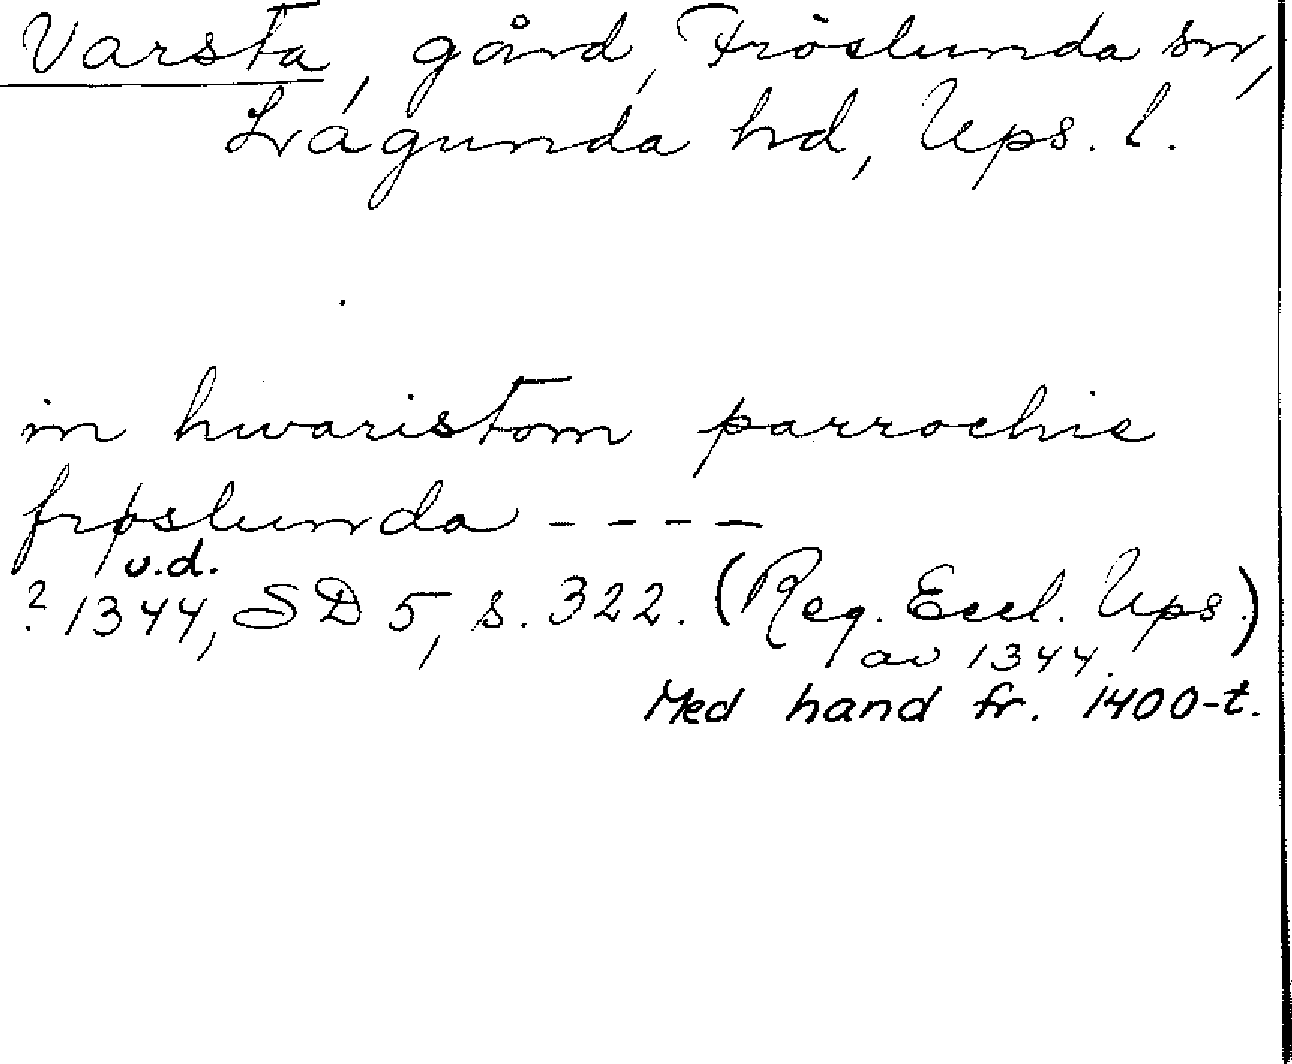 Varsta, gård, Fröslunda sn,
Lágunda hd, Ups. l.
in hwaristom parrochie
frøslunda - - - -
u.d.
? 1344, SD 5, s. 322. (Reg. Eccl. Ups.)
av 1344.
Med hand fr. 1400-t.